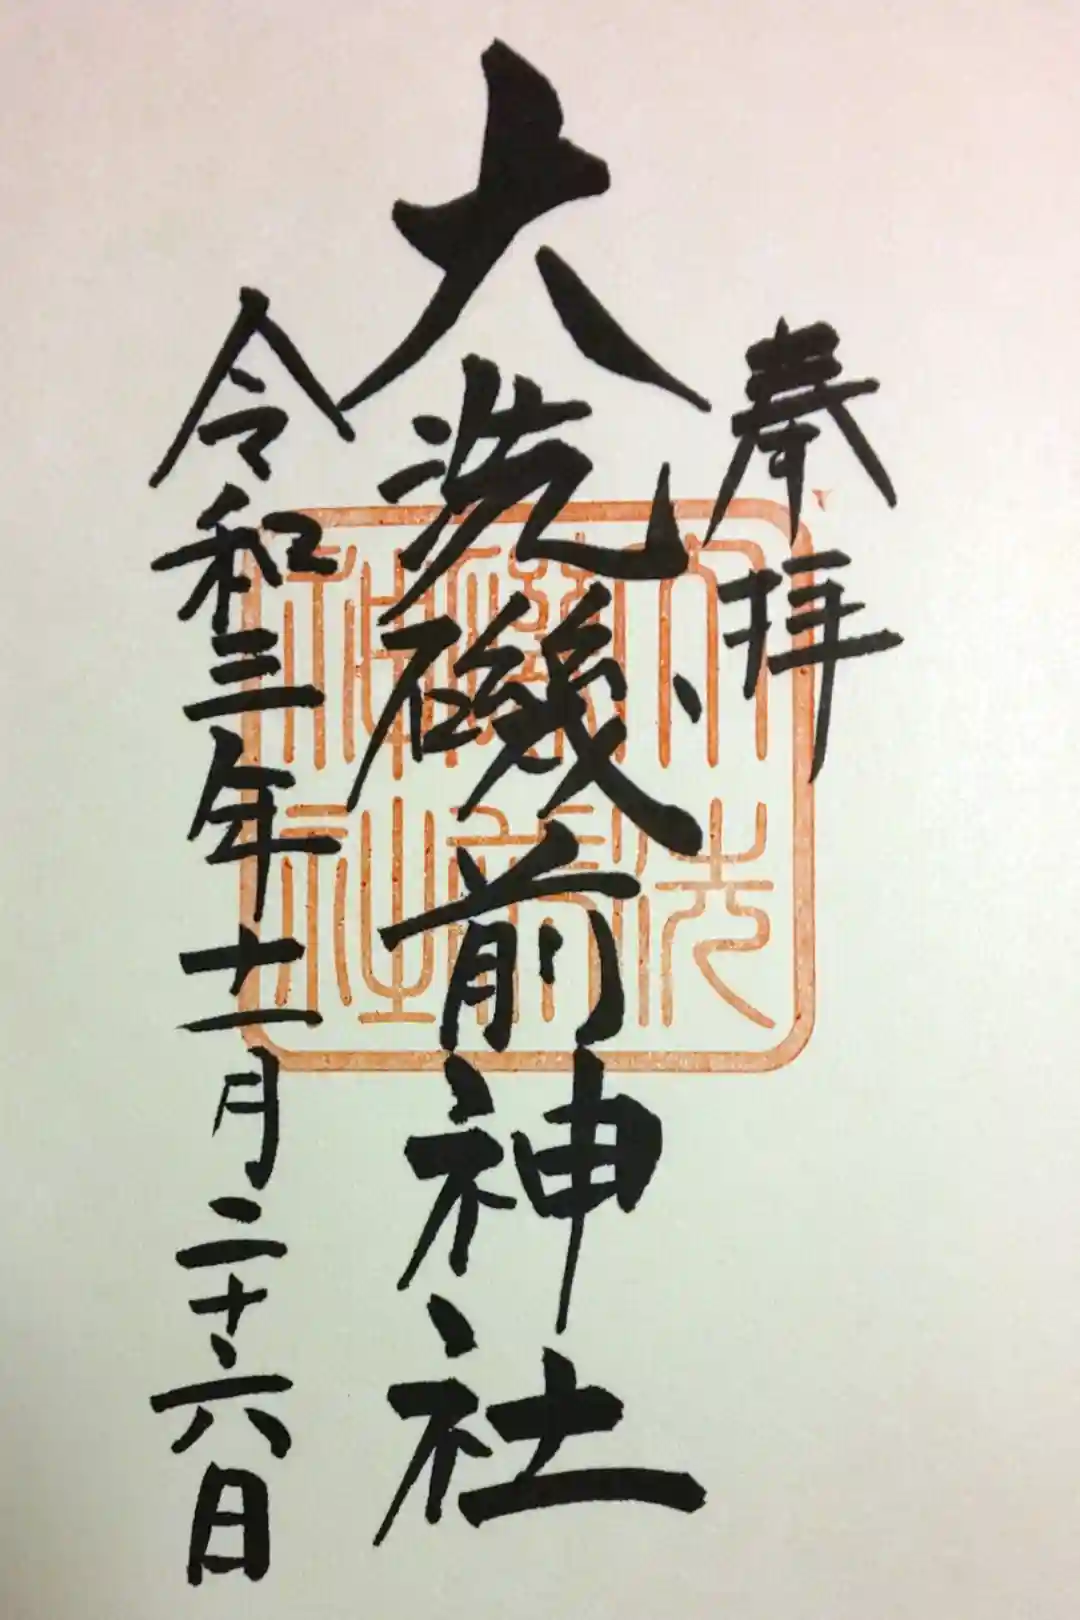 奉拝
大洗磯前神社
令和三年十一月二十六日
大洗
磯前
神社